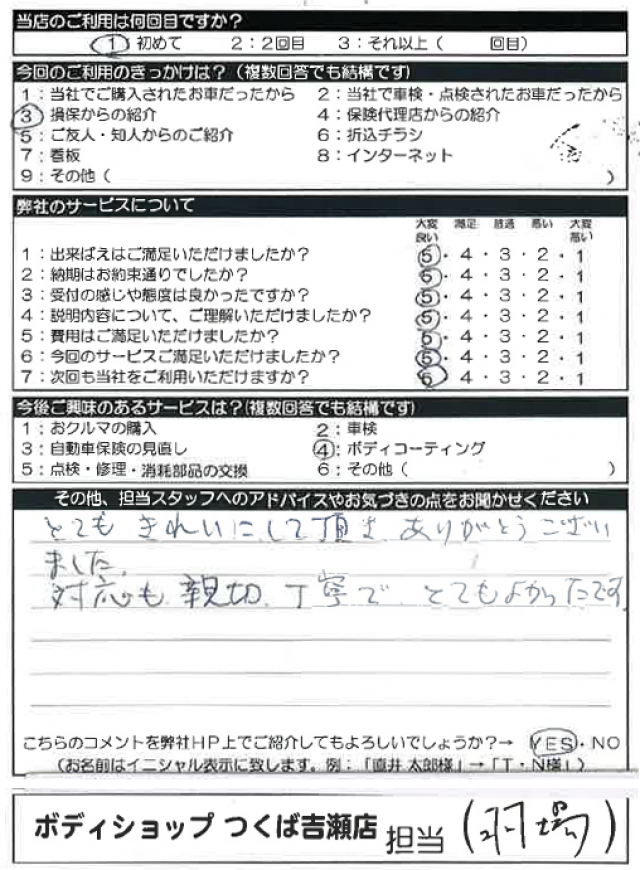 当店のご利用は何回目ですか？
1 初めて 2：2回目 3：それ以上（ 回目）
今回のご利用のきっかけは？（複数回答でも結構です）
1：当社でご購入されたお車だったから 2：当社で車検・点検されたお車だったから
3 損保からの紹介 4：保険代理店からの紹介
5：ご友人・知人からのご紹介 6：折込チラシ
7：看板 8：インターネット
9：その他（ ）
弊社のサービスについて
大変良い 満足 普通 悪い 大変悪い
1：出来ばえはご満足いただけましたか？ 5・4・3・2・1
2：納期はお約束通りでしたか？ 5・4・3・2・1
3：受付の感じや態度は良かったですか？ 5・4・3・2・1
4：説明内容について、ご理解いただけましたか？ 5・4・3・2・1
5：費用はご満足いただけましたか？ 5・4・3・2・1
6：今回のサービスご満足いただけましたか？ 5・4・3・2・1
7：次回も当社をご利用いただけますか？ 5・4・3・2・1
今後ご興味のあるサービスは？（複数回答でも結構です）
1：おクルマの購入 2：車検
3：自動車保険の見直し 4：ボディコーティング
5：点検・修理・消耗部品の交換 6：その他（ ）
その他、担当スタッフへのアドバイスやお気づきの点をお聞かせください
とても きれいにして頂き ありがとうござい
ました。
対応も 親切、丁寧で、とてもよかったです
こちらのコメントを弊社HP上でご紹介してもよろしいでしょうか？→ YES・NO
（お名前はイニシャル表示に致します。例：「直井 太郎様」→「T・N様」）
ボディショップ つくば吉瀬店 担当（羽場）